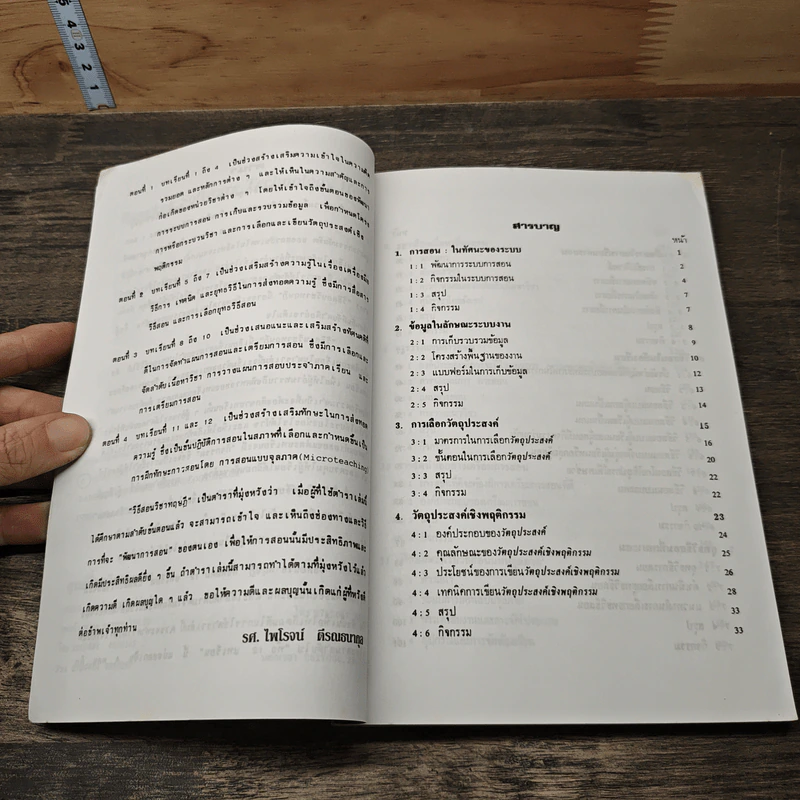 5
4
3
2
1
ตอนที่ 1 บทเรียนที่ 1 ถึง 4 เป็นช่วงสร้างเสริมความเข้าใจในความคิด
รวบยอด และหลักการต่าง ๆ และให้เห็นในความสำคัญและการ
ก่อเกิดของหน่วยวิชาต่าง ๆ โดยให้เข้าใจถึงขั้นตอนของพัฒนา
การระบบการสอน การเก็บและรวบรวมข้อมูล เพื่อกำหนดโครง
การหรือกระบวนวิชา และการเลือกและเขียนวัตถุประสงค์เชิง
พฤติกรรม
ตอนที่ 2 บทเรียนที่ 5 ถึง 7 เป็นช่วงเสริมสร้างความรู้ในเรื่องเครื่องมือ
วิธีการ เทคนิค และยุทธวิธีในการส่งทอดความรู้ ซึ่งมีการสื่อสาร
วิธีสอน และการเลือกยุทธวิธีสอน
ตอนที่ 3 บทเรียนที่ 8 ถึง 10 เป็นช่วงเสนอแนะและเสริมสร้างทัศนคติที่
ดีในการจัดทำแผนการสอนและเตรียมการสอน ซึ่งมีการเลือกและ
จัดลำดับเนื้อหาวิชา การวางแผนการสอบประจำภาคเรียน และ
การเตรียมการสอน
ตอนที่ 4 บทเรียนที่ 11 และ 12 เป็นช่วงสร้างเสริมทักษะในการส่งทอด
ความรู้ ซึ่งเป็นขั้นปฏิบัติการสอนในสภาพที่เลือกและกำหนดขึ้นเป็น
การฝึกทักษะการสอนโดย การสอนแบบจุลภาค(Microteaching)
"วิธีสอนวิชาทฤษฎี" เป็นตำราที่มุ่งหวังว่า เมื่อผู้ที่ใช้ตำราเล่มนี้
ได้ศึกษาตามลำดับขั้นตอนแล้ว จะสามารถเข้าใจ และเห็นถึงช่องทางและวิธี
การที่จะ "พัฒนาการสอน" ของตนเอง เพื่อให้การสอนนั้นมีประสิทธิภาพและ
เกิดมีประสิทธิผลดียิ่ง ๆ ขึ้น ถ้าตำราเล่มนี้สามารถทำได้ตามที่มุ่งหวังไว้แล้ว
เกิดความดี เกิดผลบุญใด ๆ แล้ว ขอให้ความดีและผลบุญนั้น เกิดแก่ผู้ที่หวังดี
ต่อข้าพเจ้าทุกท่าน
รศ. ไพโรจน์ ตีรณธนากุล
สารบาญ
หน้า
1. การสอน : ในทัศนะของระบบ 1
1 : 1 พัฒนาการระบบการสอน 2
1 : 2 กิจกรรมในระบบการสอน 4
1 : 3 สรุป 7
1 : 4 กิจกรรม 7
2. ข้อมูลในลักษณะระบบงาน 8
2 : 1 การเก็บรวบรวมข้อมูล 9
2 : 2 โครงสร้างพื้นฐานของงาน 10
2 : 3 แบบฟอร์มในการเก็บข้อมูล 12
2 : 4 สรุป 13
2 : 5 กิจกรรม 14
3. การเลือกวัตถุประสงค์ 15
3 : 1 มาตรการในการเลือกวัตถุประสงค์ 16
3 : 2 ขั้นตอนในการเลือกวัตถุประสงค์ 20
3 : 3 สรุป 22
3 : 4 กิจกรรม 22
4. วัตถุประสงค์เชิงพฤติกรรม 23
4 : 1 องค์ประกอบของวัตถุประสงค์ 24
4 : 2 คุณลักษณะของวัตถุประสงค์เชิงพฤติกรรม 25
4 : 3 ประโยชน์ของการเขียนวัตถุประสงค์เชิงพฤติกรรม 26
4 : 4 เทคนิคการเขียนวัตถุประสงค์เชิงพฤติกรรม 28
4 : 5 สรุป 33
4 : 6 กิจกรรม 33